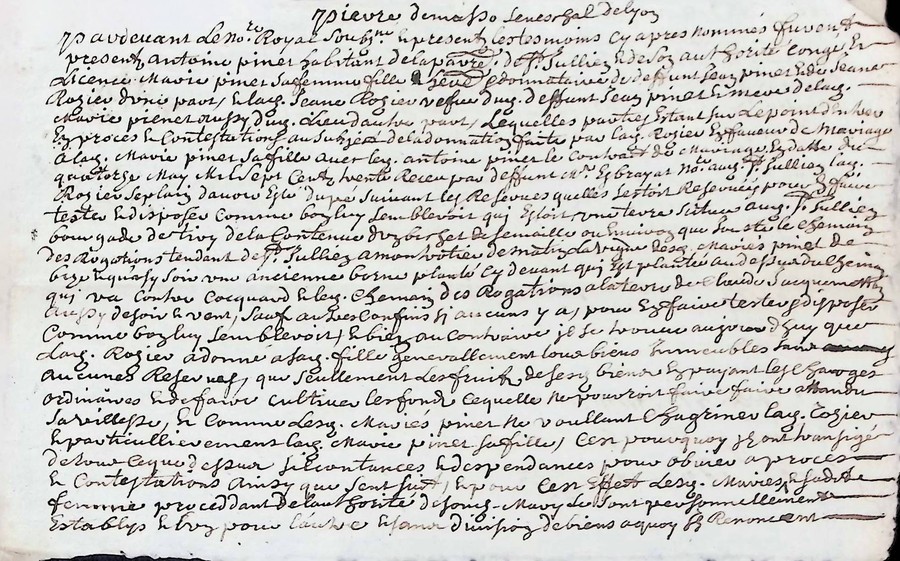 pierre demasso seneschal de lyon
pardevant Le no.re Royal Soubne Et present Les tesmoins cy apres Nommés furent
present, antoine pinet habitant de la parre. de St. Jullien Et de Son authorité Congé Et
Licence Marie pinet sa femme fille donnataire de deffunt Jean pinet Et de Jeanne
Rozier d'une part, Et lad. Jeane Rozier veffue dud. deffunt Jean pinet Et mere de lad.
Marie pinet aussy dud. Lieu d'autre part, Lesquelles parties Estant Sur Le point d'entrer
En procès Et Contestations au Sujet de la donnation faitte par lad. Rozier En faveur de Mariage
a lad. Marie pinet sa fille avec led. antoine pinet le Contract de Mariage En datte du
quatorze May Mil Sept Cent trente Receu par deffunt Me. Esbrayat No.re aud. St. Jullien lad.
Rozier Se plain d'avoir Esté dupée Suivant les Reserves quelles s'estoit Reservées pour En faire
tester Et disposer Comme bon luy Sembleroit qui Estoit une terre Scituée aud. St. Jullien
bourgade de de la Contenue d'un bichet de Semaille ou Environ que Jouste le Chemain
des Rogations tendant de St. Jullien a de matin La vigne desd. Mariés pinet de
bize une ancienne borne planté Cy devant qui Est planté au dessus du Chemain
qui va Contre Cocquard Et led. Chemain des Rogations a la terre de Claude Jacquemet
aussy de Soir Et vent, Sauf autres Confins Sy aucuns y a, pour En faire tester Et disposer
Comme bon luy Sembleroit, Et bien au Contraire jl Se trouve aujourd'huy que
Lad. Rozier a donné a Sad. fille generallement tous biens Immeubles Sans
aucunes Reserves, que Seullement Les fruits de Sesd. biens En payant les Charges
ordinaires Et de faire Cultiver les fonds Ce quelle Ne pourroit faire faire attandu
Sa villesse, Et Comme Lesd. Mariés pinet Ne voullant Chagriner lad. Rozier
Et particullierement lad. Marie pinet Sa fille, C'est pourquoy jls ont transigé
de tout Ce que dessus Circontances Et despendances pour obvier a procès
Et Contestations Ainsy que S'en Suit, Et pour C'est Effet Lesd. Mariés, Et Ladite
femme proceddant De l'authorité de Sond. Mary Se Sont personnellement
Establys Et L'un pour L'autre Et Sans division de biens a quoy jls Renoncent